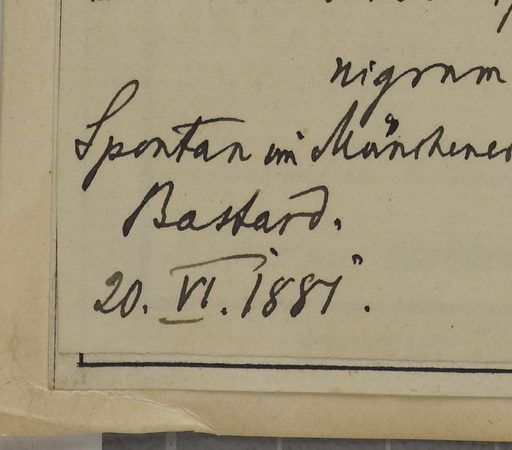 nigrum
Spontan im Münchener
Bastard.
20. VI. 1881.